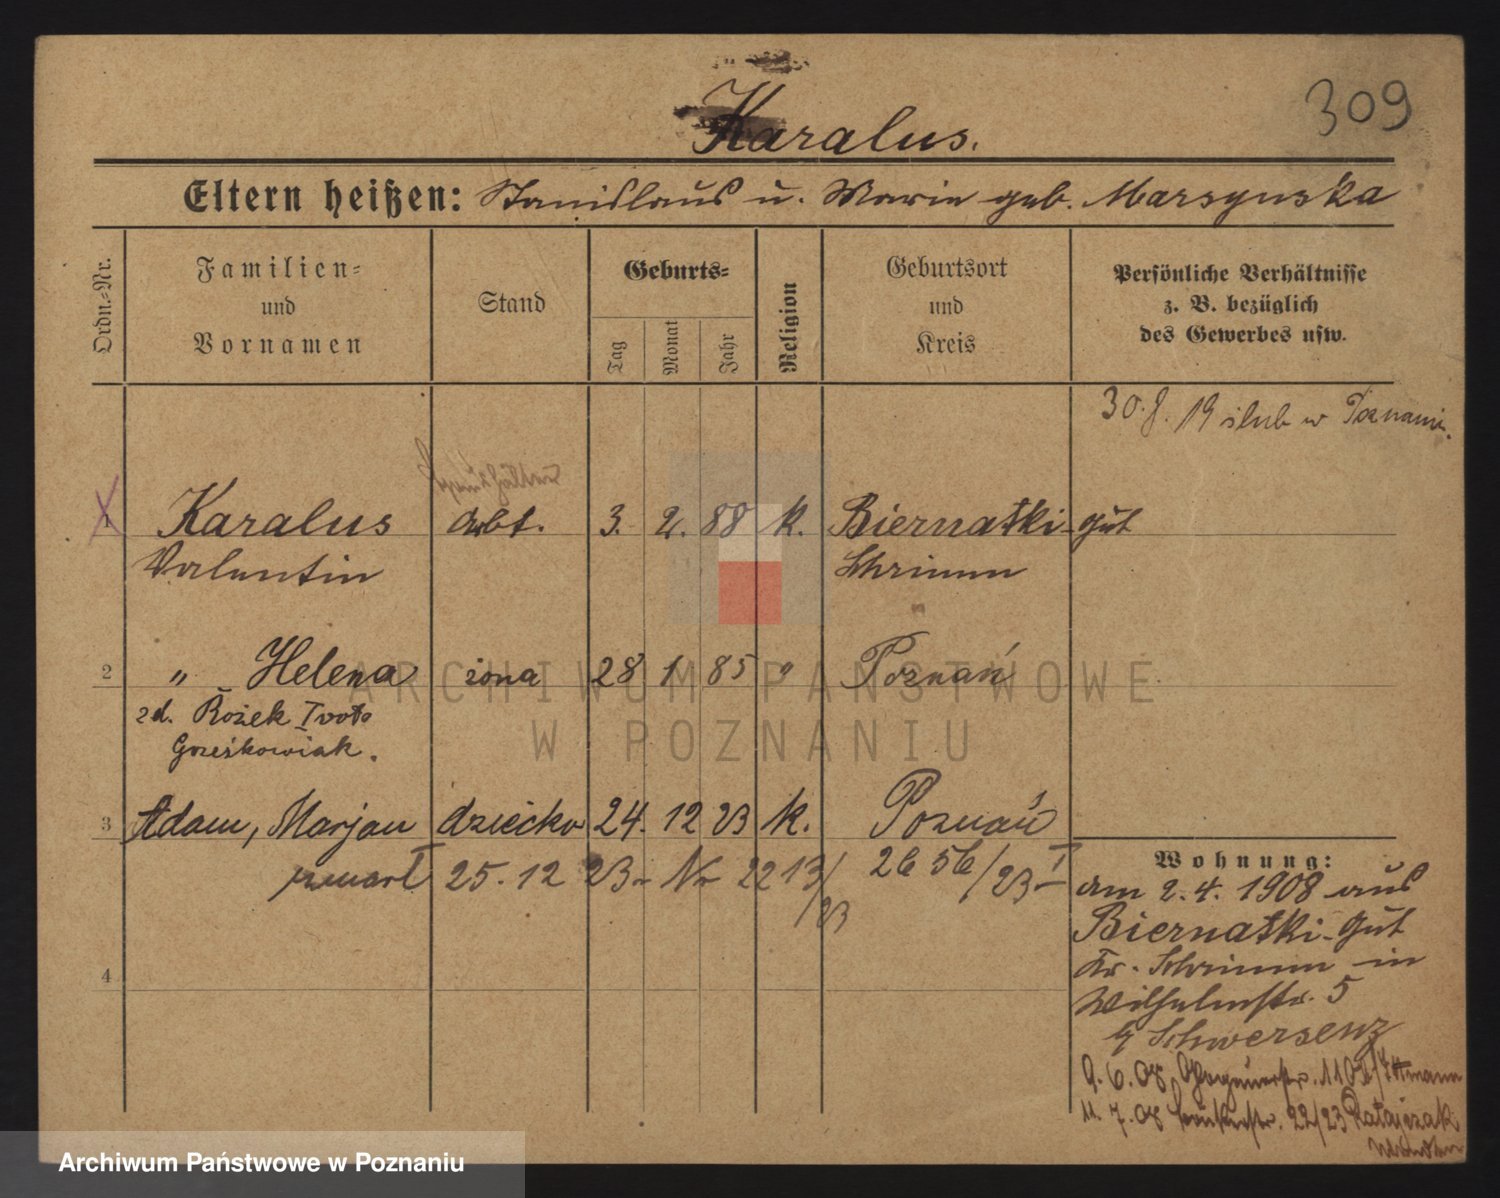 309
Karalus.
Eltern heißen: Stanislaus u. Marie geb. Marsynska
Ordn.-Nr.
Familien-
und
Vornamen
Stand
Geburts-
Tag
Monat
Jahr
Religion
Geburtsort
und
Kreis
Persönliche Verhältnisse
z. B. bezüglich
des Gewerbes usw.
19 ślub w Poznaniu.
1 Karalus Arbt. 3. 2. 88 k. Biernatki-gut
Valentin Schrimm
2 " Helena żona 28 1 85 " Poznań
zd. Rożek I voto
Grześkowiak.
3 Adam, Marjan dziecko 24. 12 23 k. Poznań
zmarł 25. 12 23 - Nr 2213/23 2656/23 - I
4
Wohnung:
am 2. 4. 1908 aus
Biernatki-gut
Kr. Schrimm in
Wilhelmstr. 5
b/ Schwersenz
9. 6. 08 Glogauerstr. 110
11. 7. 08 22/23 Ratajczak
ARCHIWUM PAŃSTWOWE
W POZNANIU
Archiwum Państwowe w Poznaniu